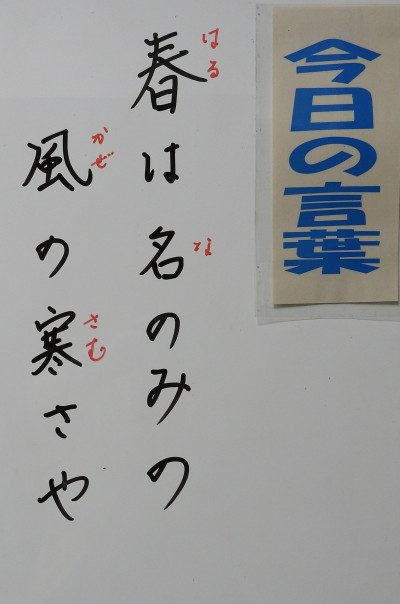 今日の言葉
春は名のみの
はる
な
風の寒さや
かぜ
さむ